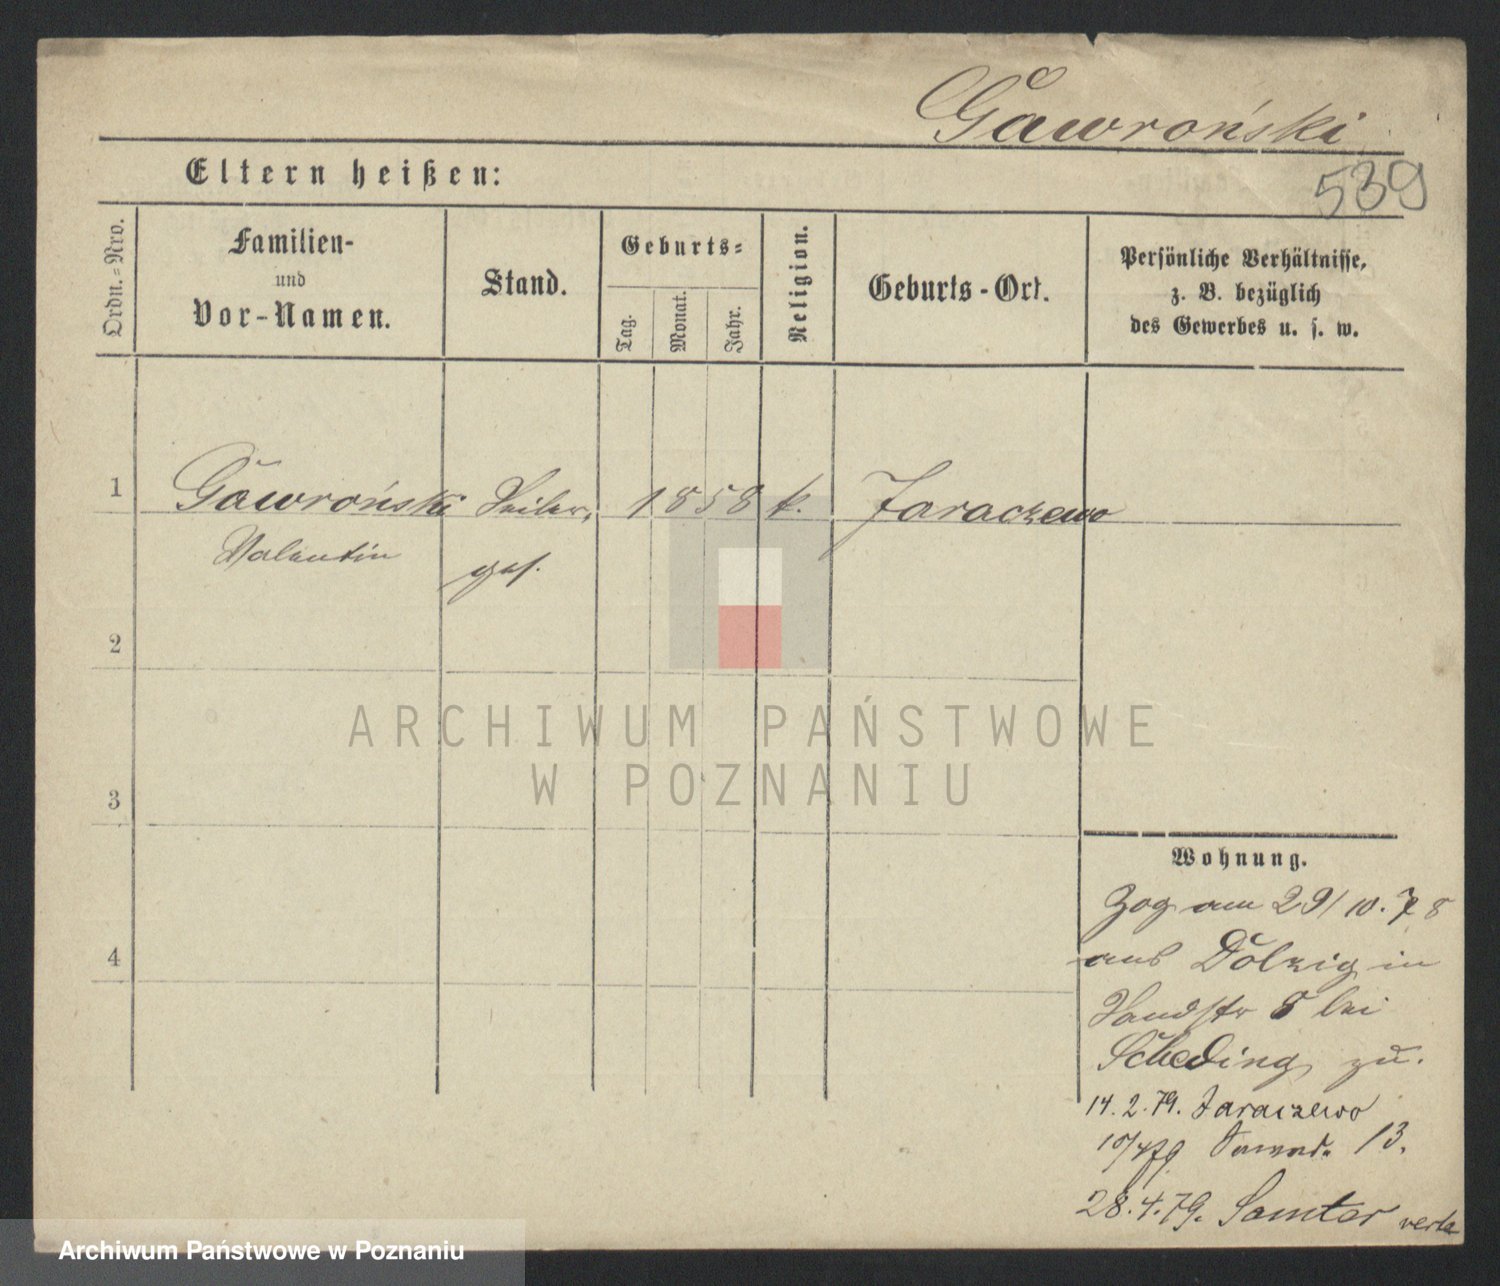 Gawroński
539
Eltern heißen:
Ordn.-Nro.
Familien-
und
Vor-Namen.
Stand.
Geburts-
Tag.
Monat.
Jahr.
Religion.
Geburts-Ort.
Persönliche Verhältnisse,
z. B. bezüglich
des Gewerbes u. s. w.
1 Gawroński 1858 k. Jaraczewo
Valentin ges.
2
3
4
ARCHIWUM PAŃSTWOWE
W POZNANIU
Wohnung.
Zog am 29/10.78
aus Dolzig in
8 bei
Scheding zu.
14.2.79. Jaraczewo
10/4 79 13.
28.4.79. Samter
Archiwum Państwowe w Poznaniu